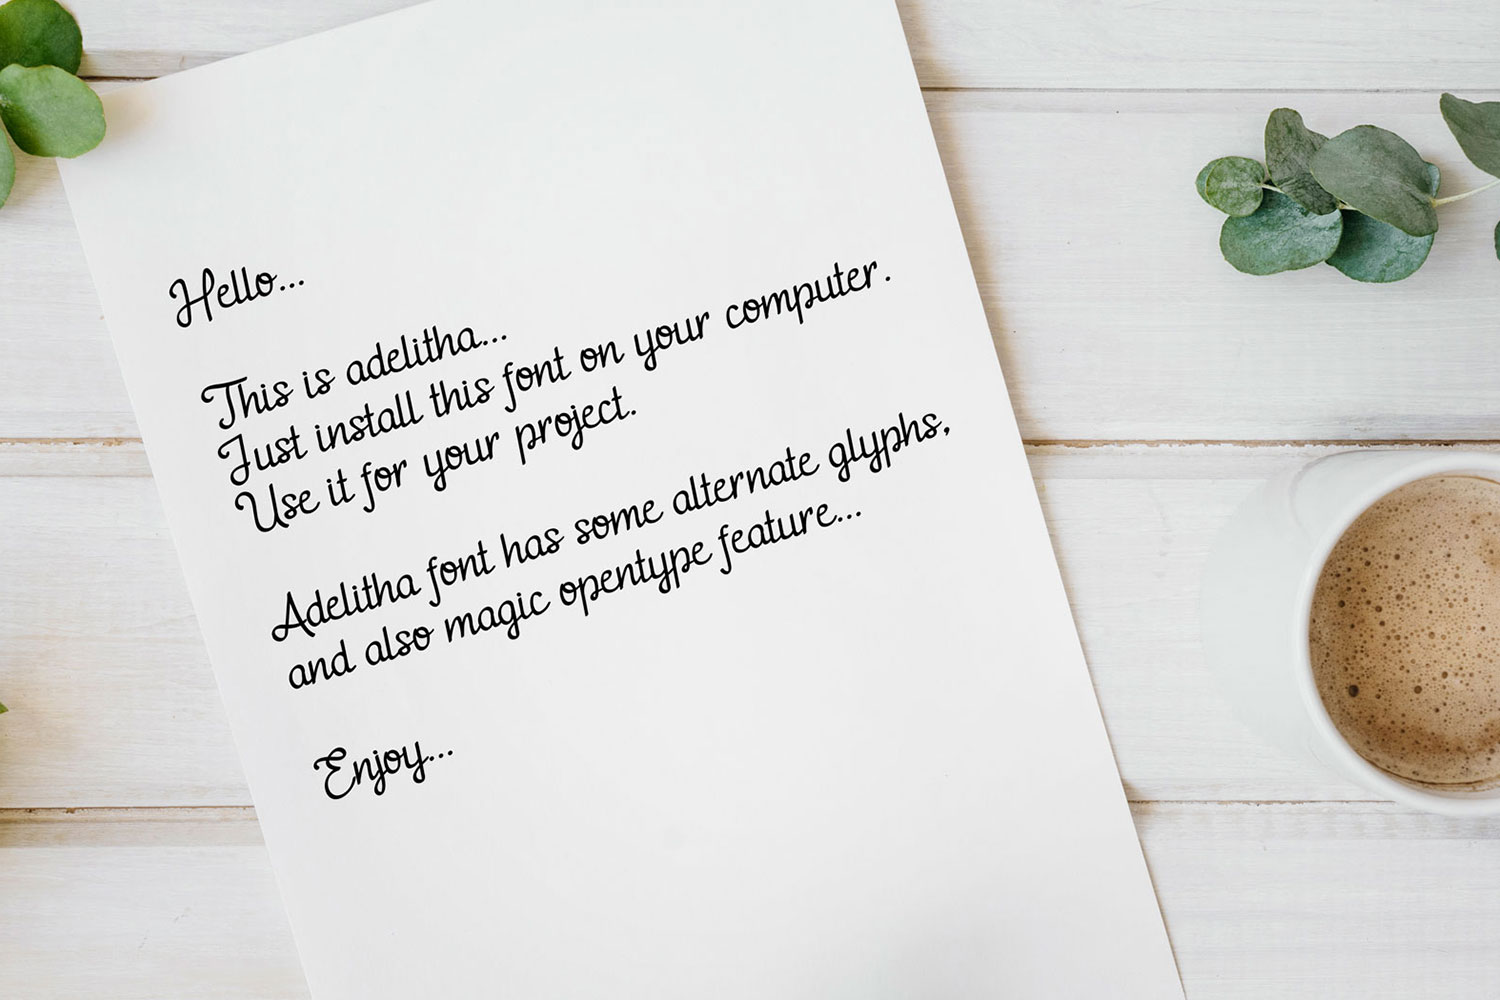 Hello...
This is adelitha...
Just install this font on your computer.
Use it for your project.
Adelitha font has some alternate glyphs,
and also magic opentype feature...
Enjoy...